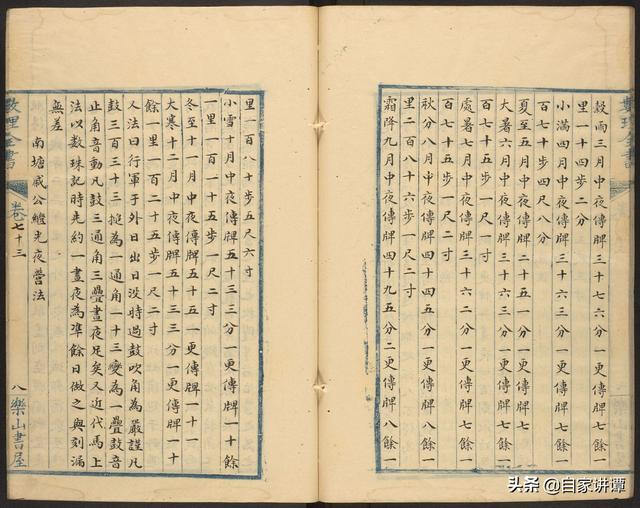 穀雨三月中夜傳牌三十七六分一更傳牌七餘一
里一十四步二分
小滿四月中夜傳牌三十六三分一更傳牌七餘一
百七十步四尺八分
夏至五月中夜傳牌二十五一分一更傳牌七
大暑六月中夜傳牌三十六三分一更傳牌七餘一
百七十五步一尺一寸
處暑七月中夜傳牌三十六三分一更傳牌七餘一
百七十五步一尺二寸
秋分八月中夜傳牌四十四五分一更傳牌八餘一
里二百八十六步一尺二寸
霜降九月中夜傳牌四十九五分二更傳牌八餘一
里一百八十步五尺六寸
小雪十月中夜傳牌五十三三分一更傳牌一十餘
一里一百一十五步一尺二寸
冬至十一月中夜傳牌五十五一更傳牌一十一
大寒十二月中夜傳牌五十三三分一更傳牌一十
餘一里一百二十五步一尺二寸
人法曰行軍于外日出日沒時過鼓吹角為嚴謹凡
鼓三百三十三搥為一通角一十三變為一疊鼓音
止角音動凡鼓三通角三疊晝夜足矣又近代馬上
法以數珠記時先約一晝夜為準餘日做之與刻漏
無差
南塘戚公繼光夜營法
數理全書
卷七十三
八 樂山書屋
頭条 @自家讲谭